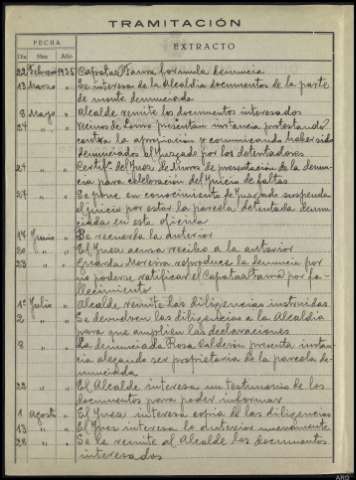 TRAMITACIÓN
FECHA
EXTRACTO
Día Mes Año
22 Febrero 1935 Capataz formula denuncia
13 Marzo " Se interesa de la Alcaldía documentos de la parte
de monte denunciada
8 Mayo " Alcalde remite los documentos interesados
24 " " Vecinos de presentan instancia protestando
contra la apropiación y comunicando haber sido
denunciados al Juzgado por los detentadores
24 " " Certif. del Juez de de presentación de la denun
cia para celebración del Juicio de faltas
27 " " Se pone en conocimiento de Juzgado suspenda
el juicio por estar la parcela detentada denun
ciada en esta oficina
14 Junio " Se recuerda la anterior
20 " " El Juez acusa recibo a la anterior
23 " " Guarda Moreira reproduce la denuncia por
no poderse ratificar el Capataz por fa-
llecimiento
1º Julio " Alcalde remite las diligencias instruidas
2 " " Se devuelven las diligencias a la Alcaldía
para que amplíen las declaraciones
8 " " La denunciada Rosa Calderón presenta instan
cia alegando ser propietaria de la parcela de-
nunciada
22 " " El Alcalde interesa un testimonio de los
documentos para poder informar
1 Agosto " El Juez interesa copia de las diligencias
13 " " El Juez interesa lo anterior nuevamente
28 " " Se le remite al Alcalde los documentos
interesados